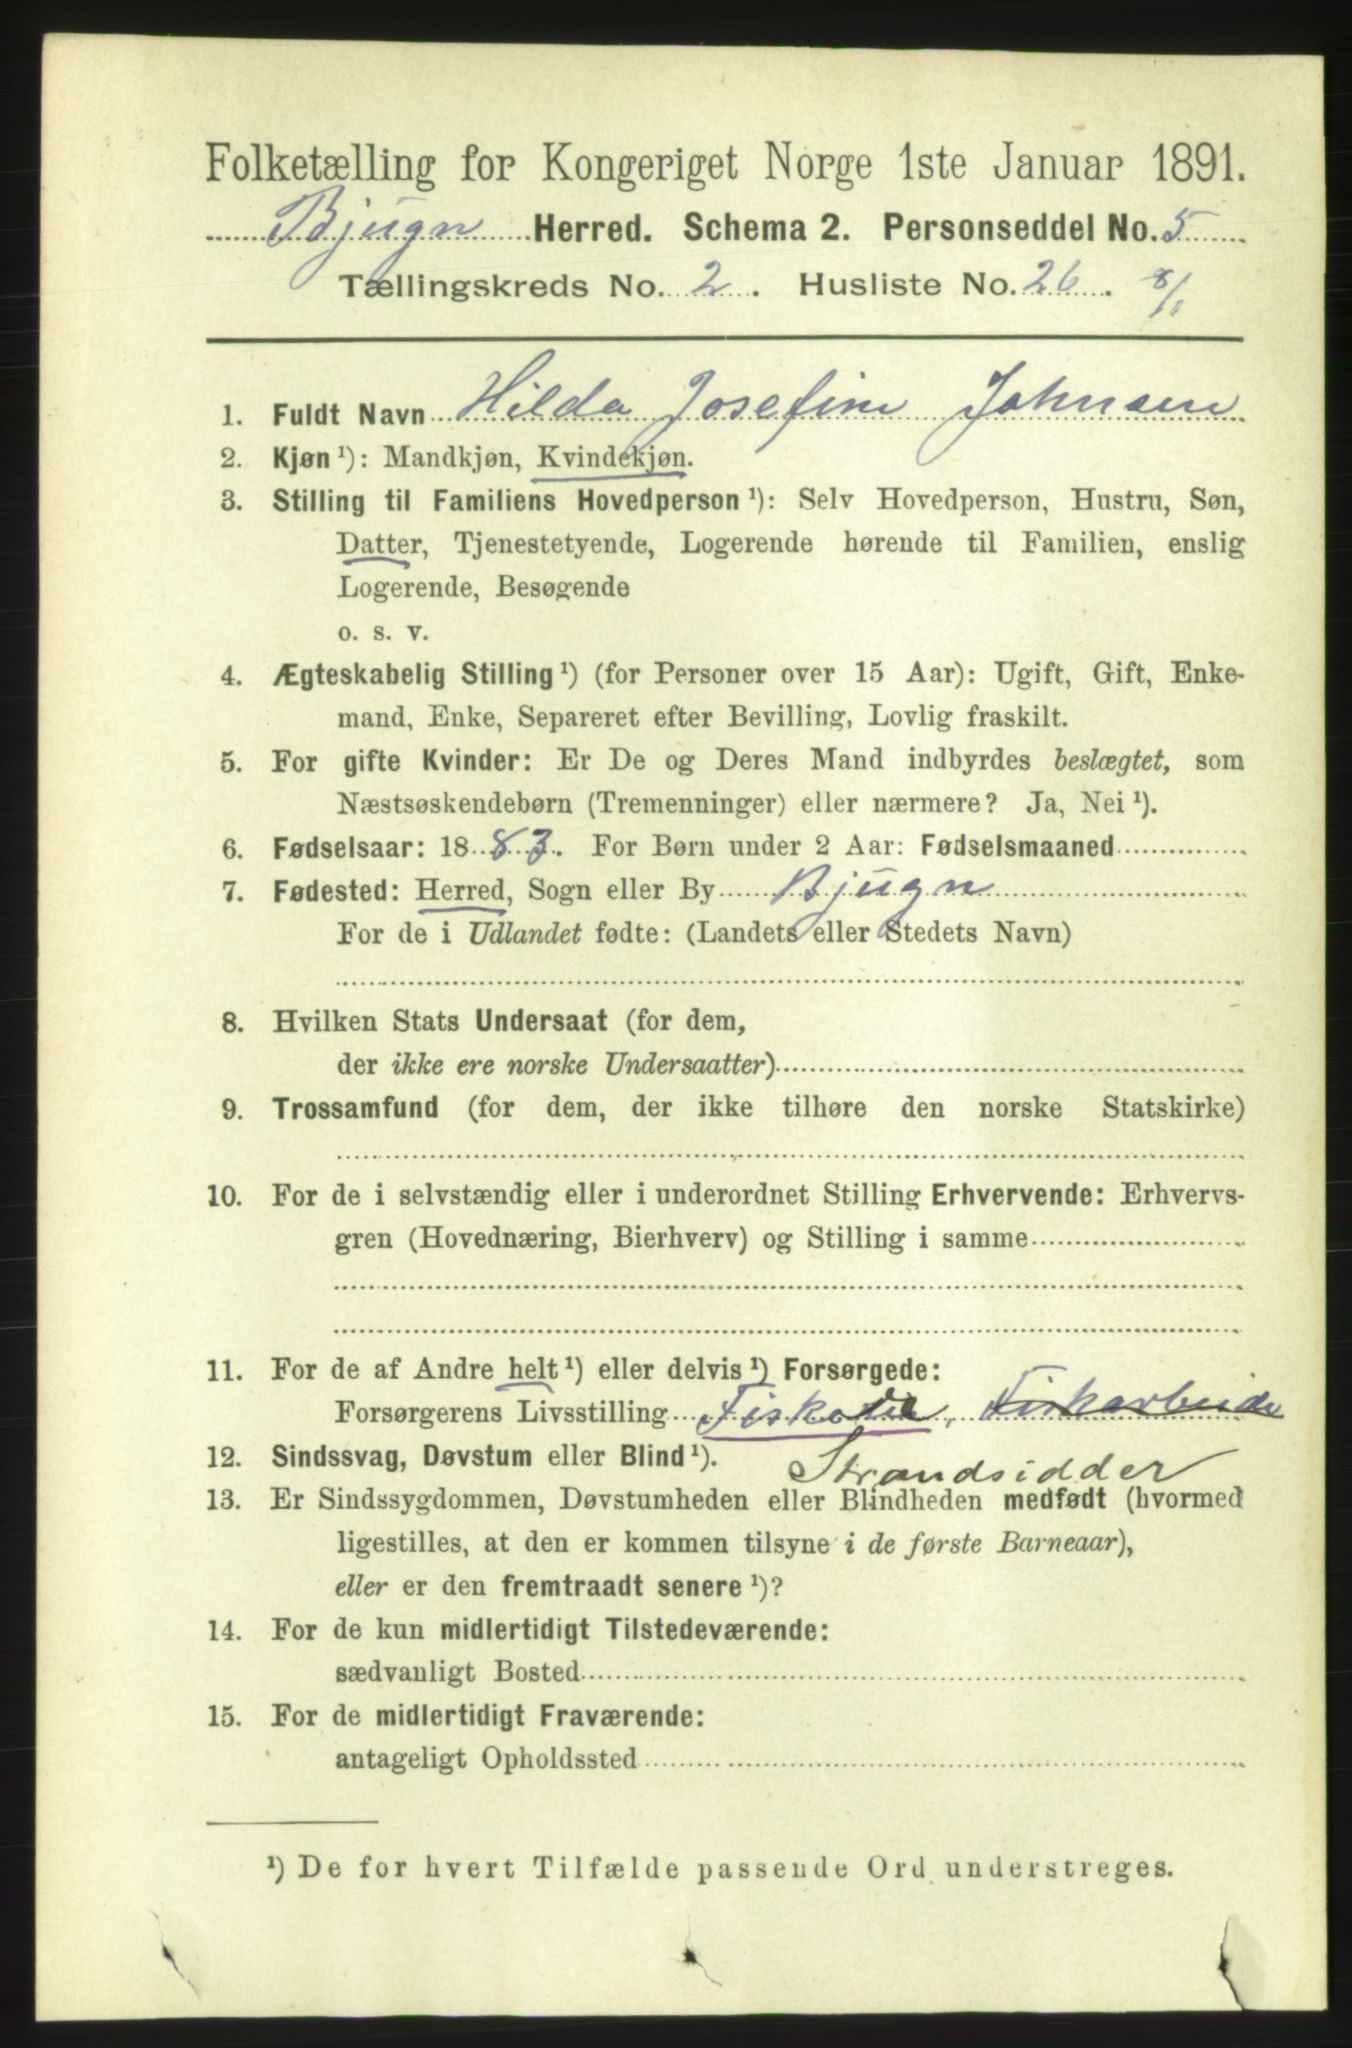 Folketælling for Kongeriget Norge 1ste Januar 1891.
Bjugn Herred. Schema 2. Personseddel No. 5
Tællingskreds No. 2. Husliste No. 26. 8/1
1. Fuldt Navn Hilda Josefine Johnsen
2. Kjøn¹): Mandkjøn, Kvindekjøn.
3. Stilling til Familiens Hovedperson¹): Selv Hovedperson, Hustru, Søn,
Datter, Tjenestetyende, Logerende hørende til Familien, enslig
Logerende, Besøgende
o. s. v.
4. Ægteskabelig Stilling¹) (for Personer over 15 Aar): Ugift, Gift, Enke-
mand, Enke, Separeret efter Bevilling, Lovlig fraskilt.
5. For gifte Kvinder: Er De og Deres Mand indbyrdes beslægtet, som
Næstsøskendebørn (Tremenninger) eller nærmere? Ja, Nei¹).
6. Fødselsaar: 1883. For Børn under 2 Aar: Fødselsmaaned
7. Fødested: Herred, Sogn eller By Bjugn
For de i Udlandet fødte: (Landets eller Stedets Navn)
8. Hvilken Stats Undersaat (for dem,
der ikke ere norske Undersaatter)
9. Trossamfund (for dem, der ikke tilhøre den norske Statskirke)
10. For de i selvstændig eller i underordnet Stilling Erhvervende: Erhvervs-
gren (Hovednæring, Bierhverv) og Stilling i samme
11. For de af Andre helt¹) eller delvis¹) Forsørgede:
Forsørgerens Livsstilling Fiskarbeide
12. Sindssvag, Døvstum eller Blind¹). Strandsidder
13. Er Sindssygdommen, Døvstumheden eller Blindheden medfødt (hvormed
ligestilles, at den er kommen tilsyne i de første Barneaar),
eller er den fremtraadt senere¹)?
14. For de kun midlertidigt Tilstedeværende:
sædvanligt Bosted
15. For de midlertidigt Fraværende:
antageligt Opholdssted
¹) De for hvert Tilfælde passende Ord understreges.